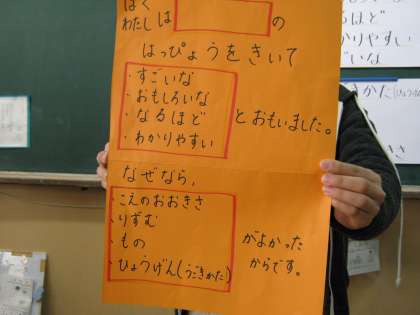 ぼく
わたしは の
はっぴょうをきいて
・すごいな
・おもしろいな
・なるほど
・わかりやすい
とおもいました。
なぜなら、
・こえのおおきさ
・りずむ
・もの
・ひょうげん(うごきかた)
がよかった
からです。
るほど
かりやすい
いな